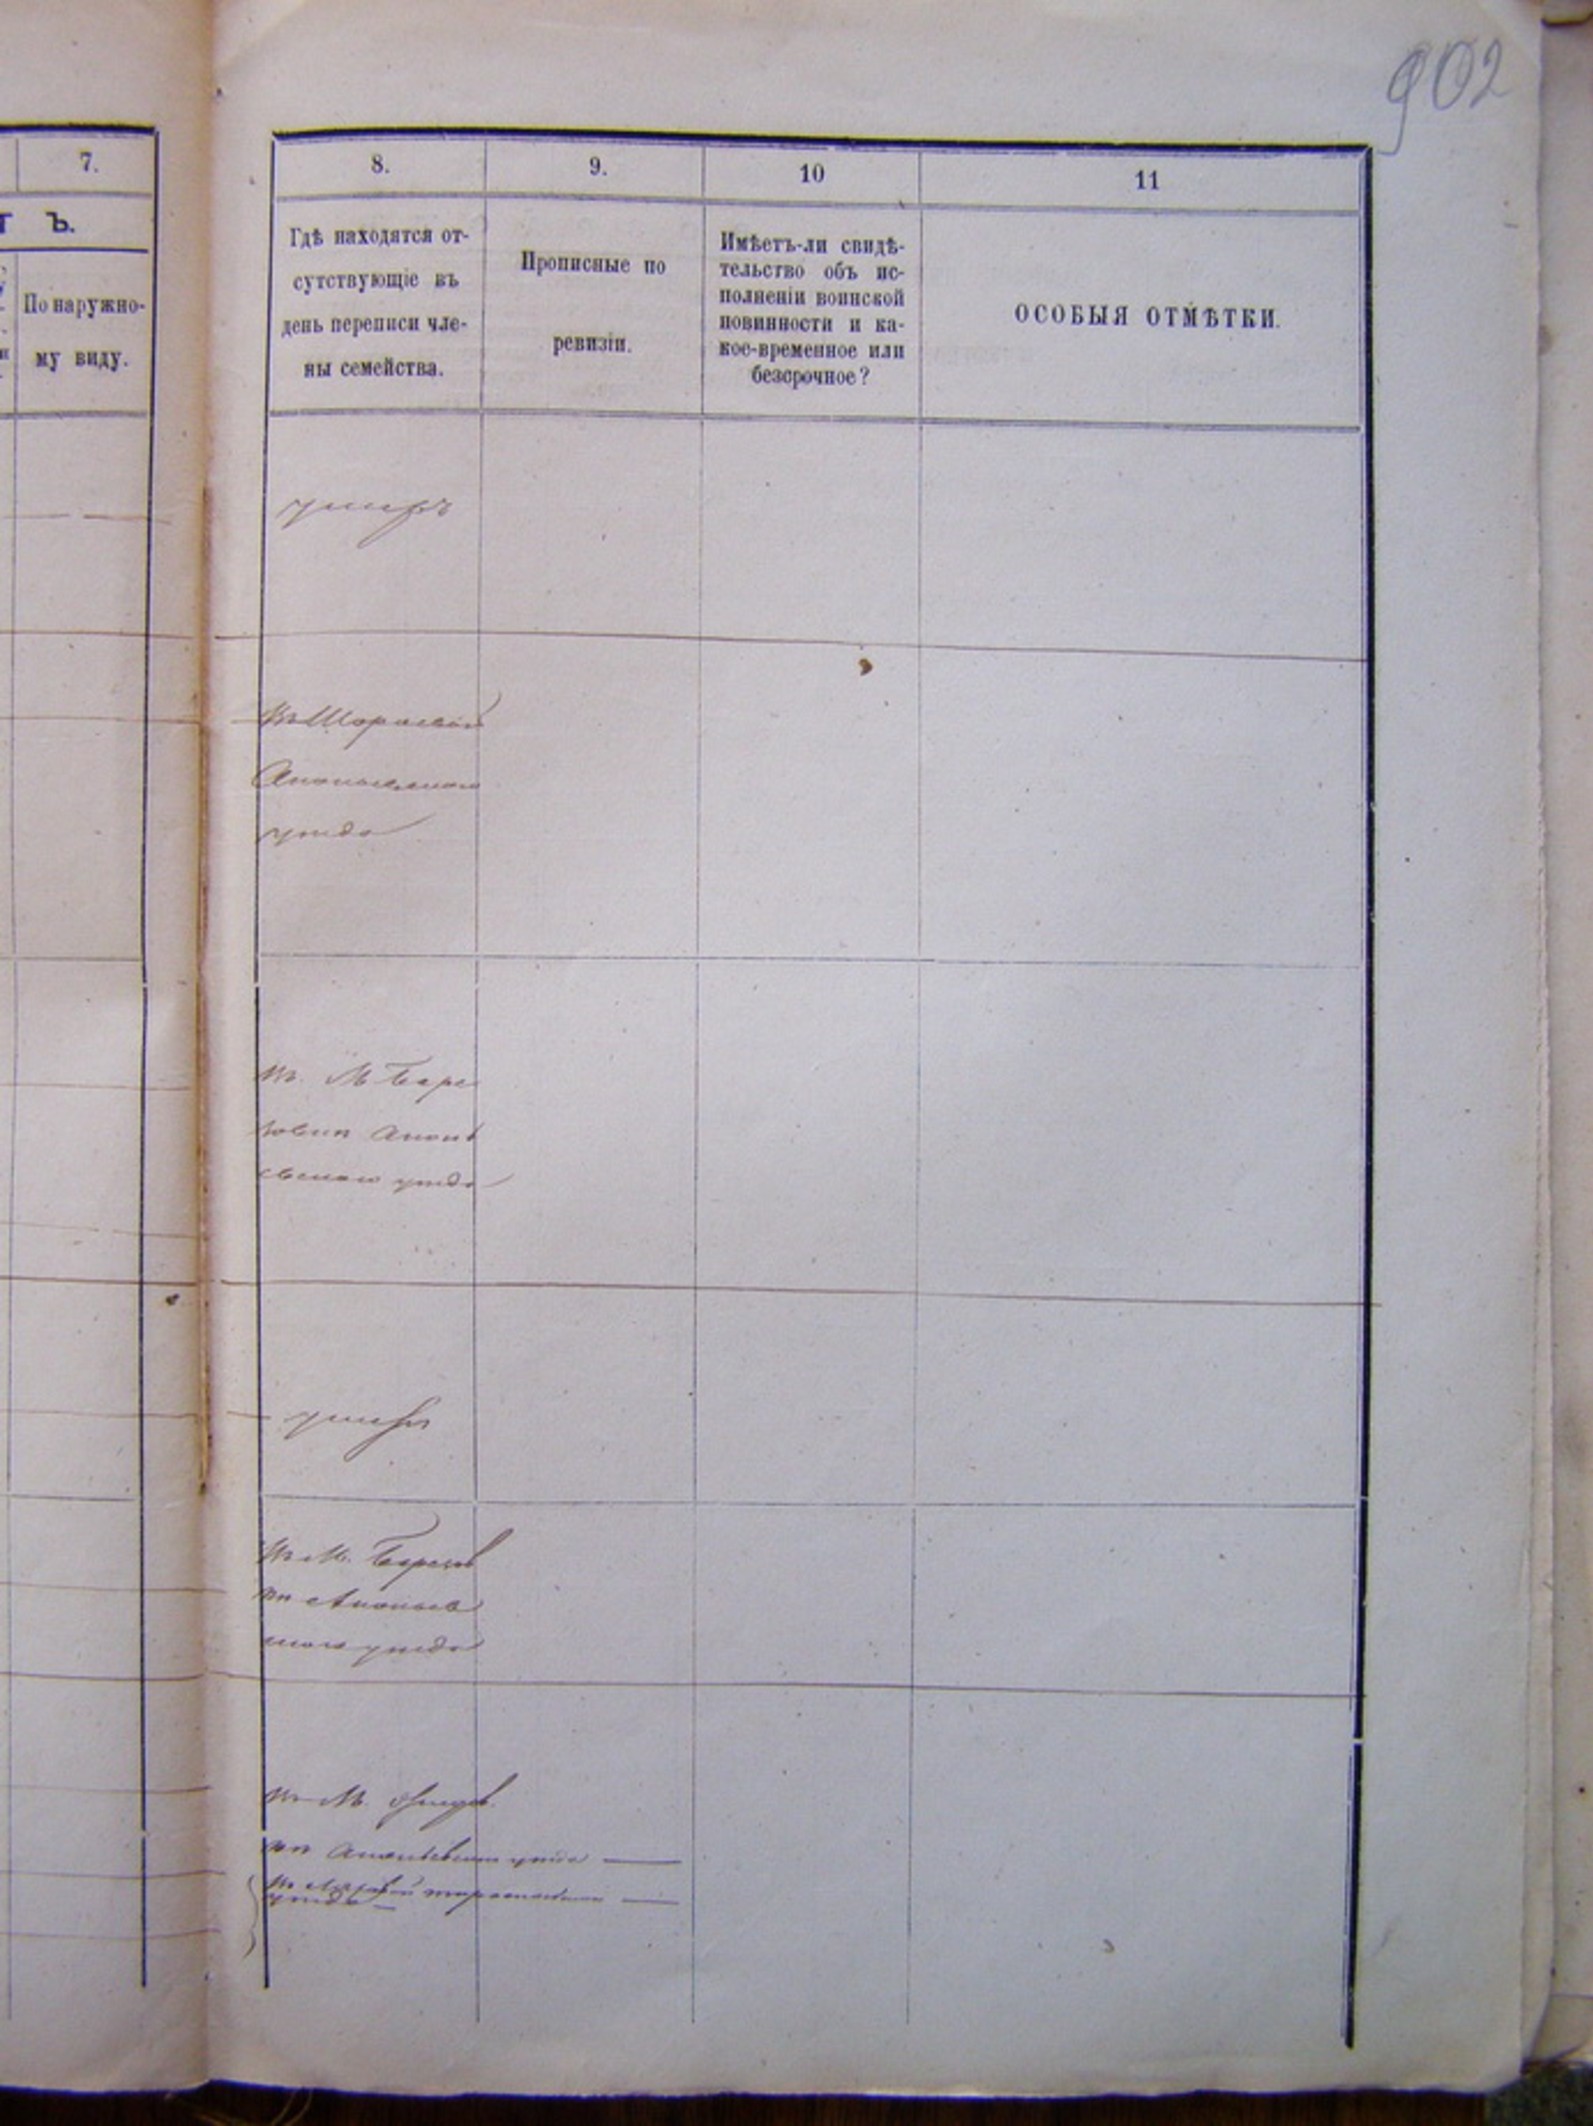 902
7.
Ъ.
По наружно-
му виду.
8.
9.
10
11
Гдѣ находятся от-
сутствующіе въ
день переписи чле-
ны семейства.
Прописные по
ревизіи.
Имѣетъ-ли свидѣ-
тельство объ ис-
полненіи воинской
повинности и ка-
кое-временное или
безсрочное?
ОСОБЫЯ ОТМѢТКИ.
умеръ
Въ
Ананьевскаго
уѣзда
въ М Бере
зовкѣ Анань
евскаго уѣзда
умеръ
Въ М. Березов
кѣ Ананьев
скаго уѣзда
въ М.
Ананьевскаго уѣзда
уѣзда